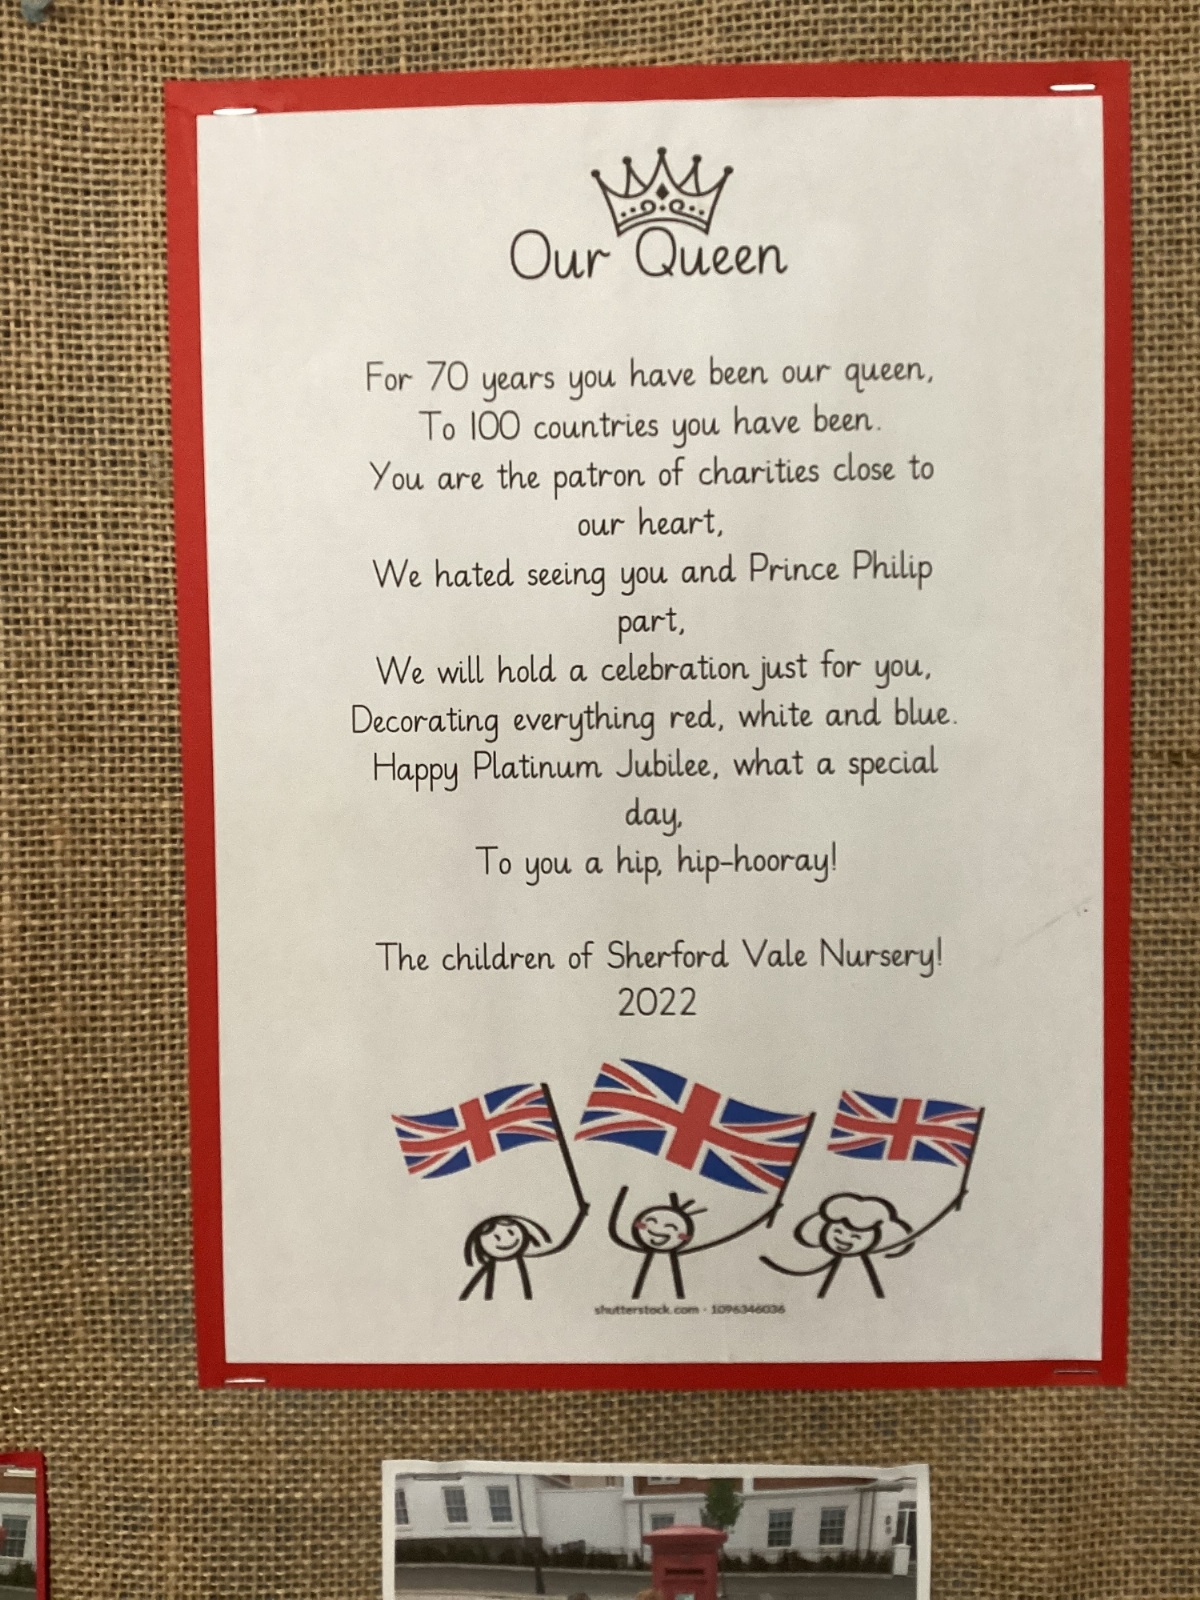 Our Queen
For 70 years you have been our queen,
To 100 countries you have been.
You are the patron of charities close to
our heart,
We hated seeing you and Prince Philip
part,
We will hold a celebration just for you,
Decorating everything red, white and blue.
Happy Platinum Jubilee, what a special
day,
To you a hip, hip-hooray!
The children of Sherford Vale Nursery!
2022
shutterstock.com · 1096346036